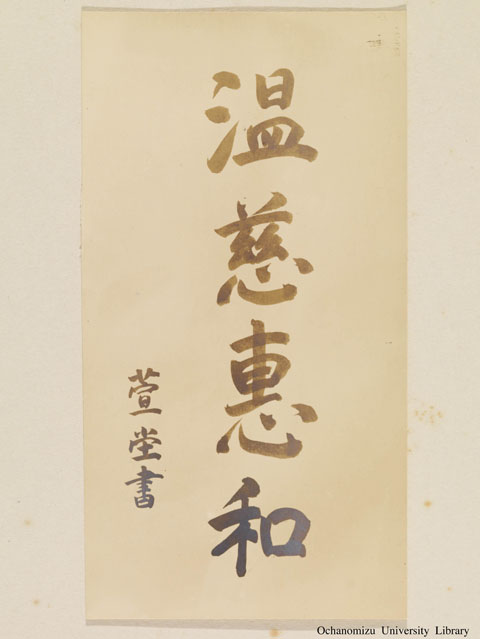 温慈惠和
萱堂書
Ochanomizu University Library